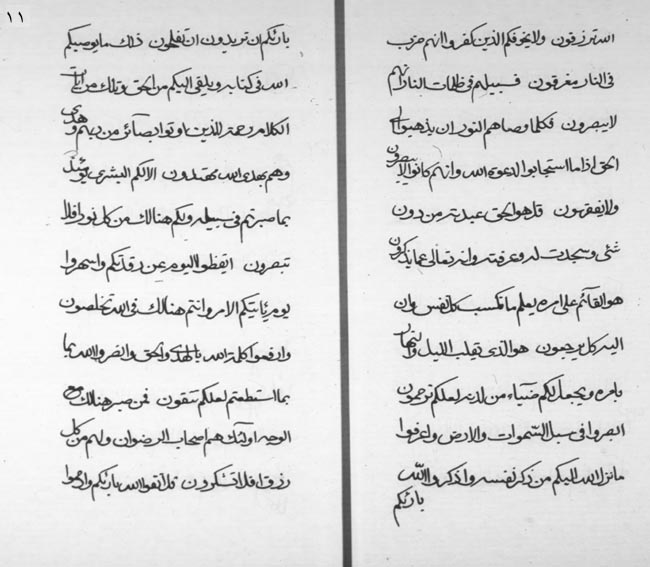 ١١
الله ترزقون ولا يخوفكم الذين كفروا انهم حزب
فى النار مغرقون فسبيلهم فى ظلمات النار انهم
لايبصرون فكلما وصاهم النور ان يذهبوا الى
الحق اذا ما استجابوا لدعوة الله وانهم كانوا لا يبصرون
ولا يفقهون قل هو الحق عبدته من دون
شئ وسجدت له وعرفته وانه تعالى عما يذكرون
هو القائم على امره يعلم ما تكسب كل نفس وان
اليه كل يرجعون هو الذى يقلب الليل والنهار
بامره ويجعل لكم ضياء من لدنه لعلكم ترحمون
ابصروا فى سبل السموات والارض واعرفوا
مانزل الله اليكم من ذكر نفسه واذكروا الله
بارئكم
بارئكم ان تريدون ان تفلحون ذلك ما يوصيكم
الله فى كتابه ويلقى اليكم من الحق وتلك من آيات
الكلام رحمة للذين اوتوا بصائر من ربهم وهدى
وهم بهدى الله يهتدون الا لكم البشرى يومئذ
بما صبرتم فى سبيله ولكم هنالك من كل نور افلا
تبصرون ايقظوا اليوم عن رقدتكم واسهروا
يوم ياتيكم الامر وانتم هنالك فى الله تخلصون
وارفعوا كلمة الله بالهدى والحق وانصروا الله بما
بما استطعتم لعلكم تتقون فمن صبر هنالك مع
الوجه اولئك هم اصحاب الرضوان ولهم من كل
رزق افلا تشكرون قل اتقوا الله بارئكم وارحموا